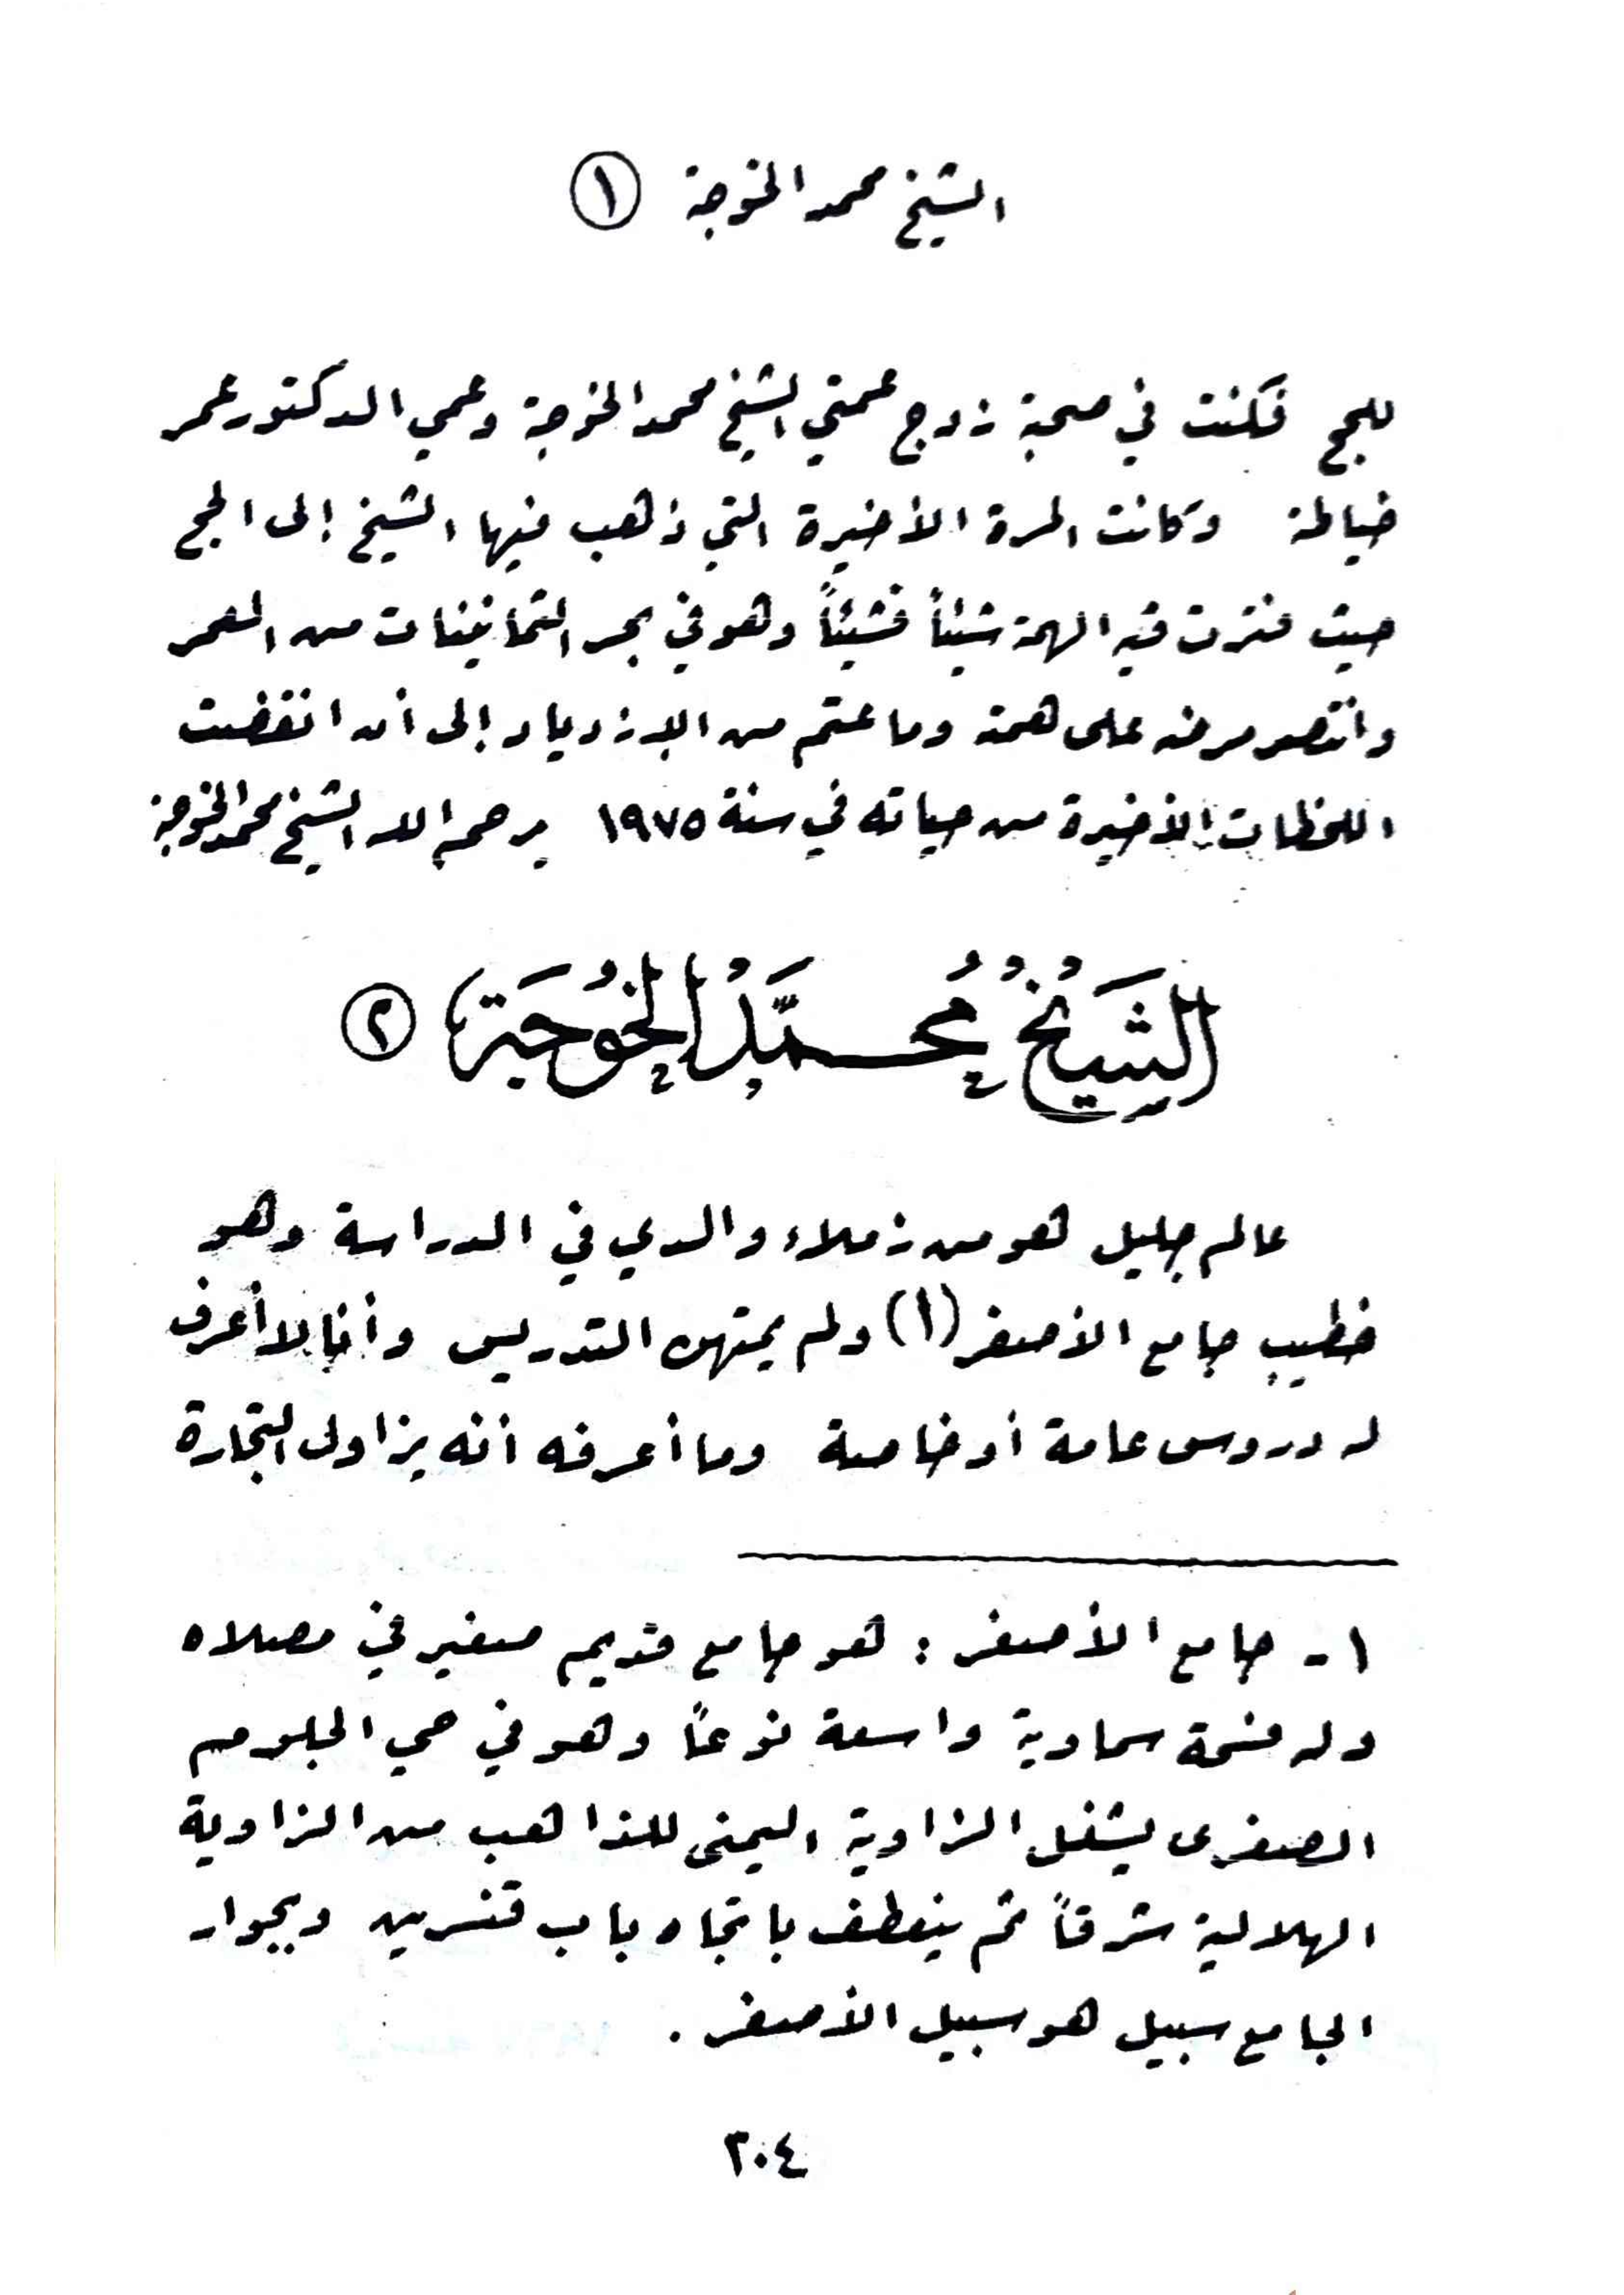 الشيخ محمد الخوجة ١
للحج فكنت في صحبة زوج عمتي الشيخ محمد الخوجة وعمي الدكتور عمر
خياطة وكانت المرة الأخيرة التي ذهب فيها الشيخ إلى الحج
حيث فترت فيه الهمة شيئاً فشيئاً وهو في بحر الثمانينات من العمر
وانتصر مرضه على همته وما عتم من الازدياد إلى أن انقضت
اللحظات الأخيرة من حياته في سنة ١٩٧٥ يرحم الله الشيخ محمد الخوجة
الشَّيْخُ مُحَمَّدُ الخُوجَة ٢
عالم جليل هو من زملاء والدي في الدراسة وهو
خطيب جامع الأصفر (١) ولم يمتهن التدريس وأنا لا أعرف
له دروس عامة أو خاصة وما أعرفه أنه يزاول التجارة
١- جامع الأصفر : هو جامع قديم صغير في مصلاه
وله فسحة سماوية واسعة نوعاً وهو في حي الجلوم
الصغرى يشغل الزاوية اليمنى للذاهب من الزاوية
الهلالية شرقاً ثم ينعطف باتجاه باب قنسرين وبجوار
الجامع سبيل هو سبيل الأصفر .
٢٠٤